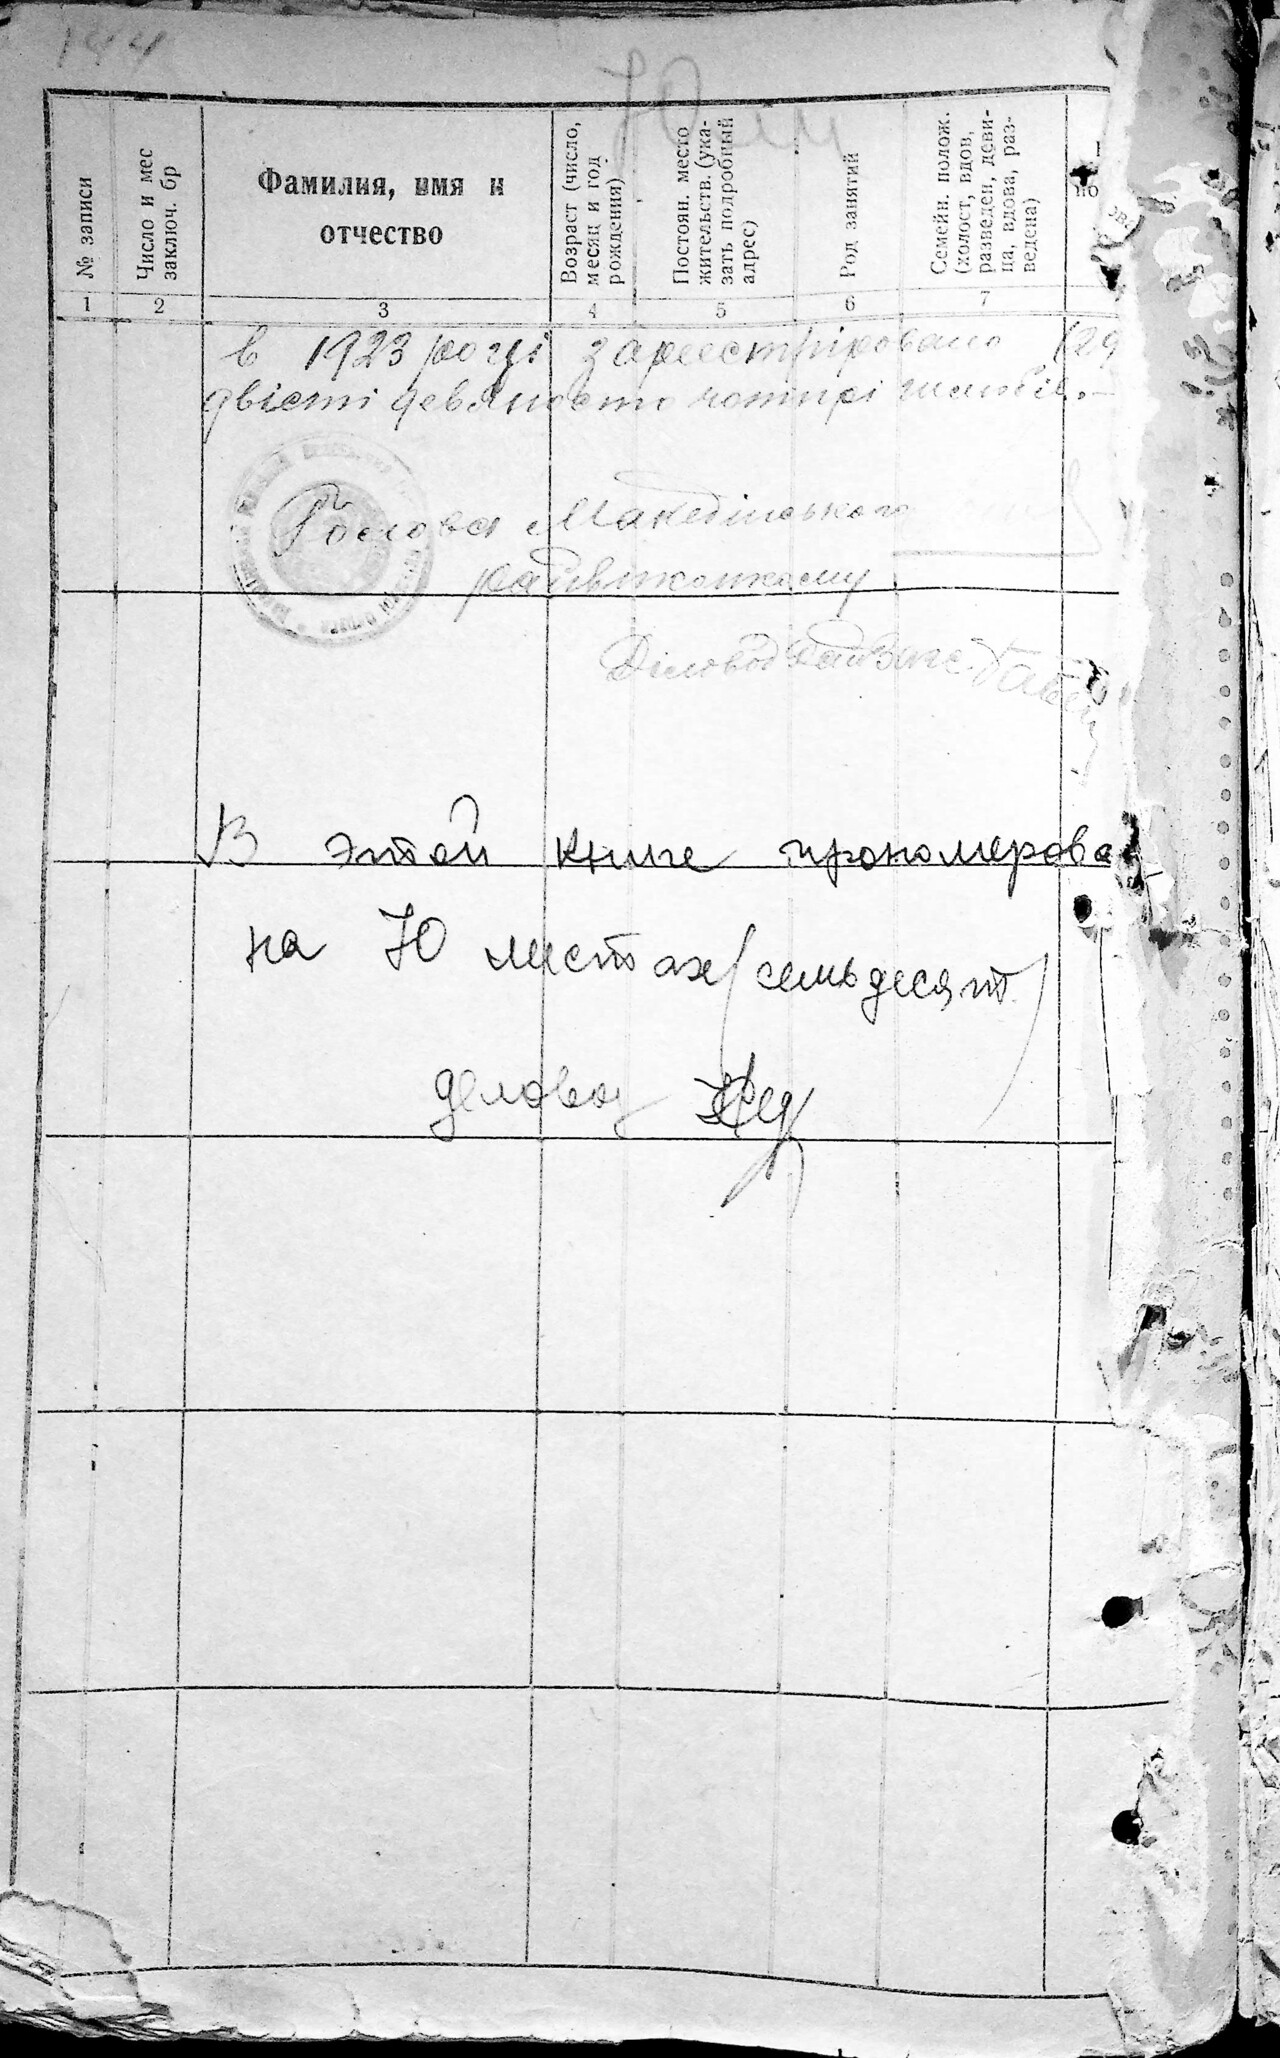 144
70 лл
№ записи
Число и мес
заключ. бр
Фамилия, имя и
отчество
Возраст (число,
месяц и год
рождения)
Постоян. место
жительств. (ука-
зать подробный
адрес)
Род занятий
Семейн. полож.
(холост, вдов,
разведен, деви-
ца, вдова, раз-
ведена)
1 2 3 4 5 6 7
в 1923 році зареєстрировано (29
двісті девяносто чотирі шлюбів.-
Голова
райвиконкому
Діловод
В этой книге прономерова
на 70 листах (семьдесят)
деловод